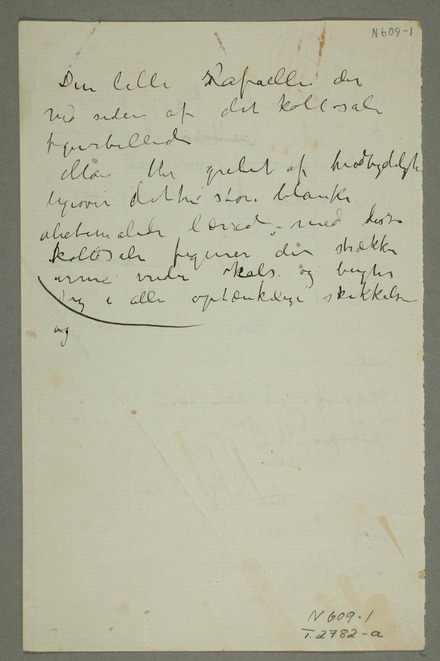 N 609-1
Den lille Rafaelli der
ved siden af det kollosale
figurbillede
Man blir grebet af
ligeover dette store blanke
lærred – med disse
kolossale figurer der strækker
arme vrider hals og bøyer
sig i alle optænkelige skikkelser
og
N 609-1
T.2782-a